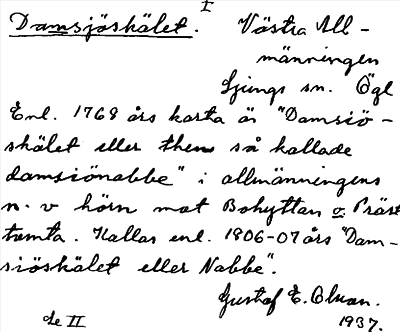 I
Damsjöskälet. Västra All-
männingen
Ljungs sn. Ögl
Enl. 1768 års karta är "Damsiö-
skälet eller then så kallade
damsiönabbe" i allmänningens
n. v hörn mot Bohyttan o. Präst
tomta. Kallas enl. 1806-07 års "Dam-
siöskälet eller Nabbe".
Gustaf E. Olsson.
de II 1937.